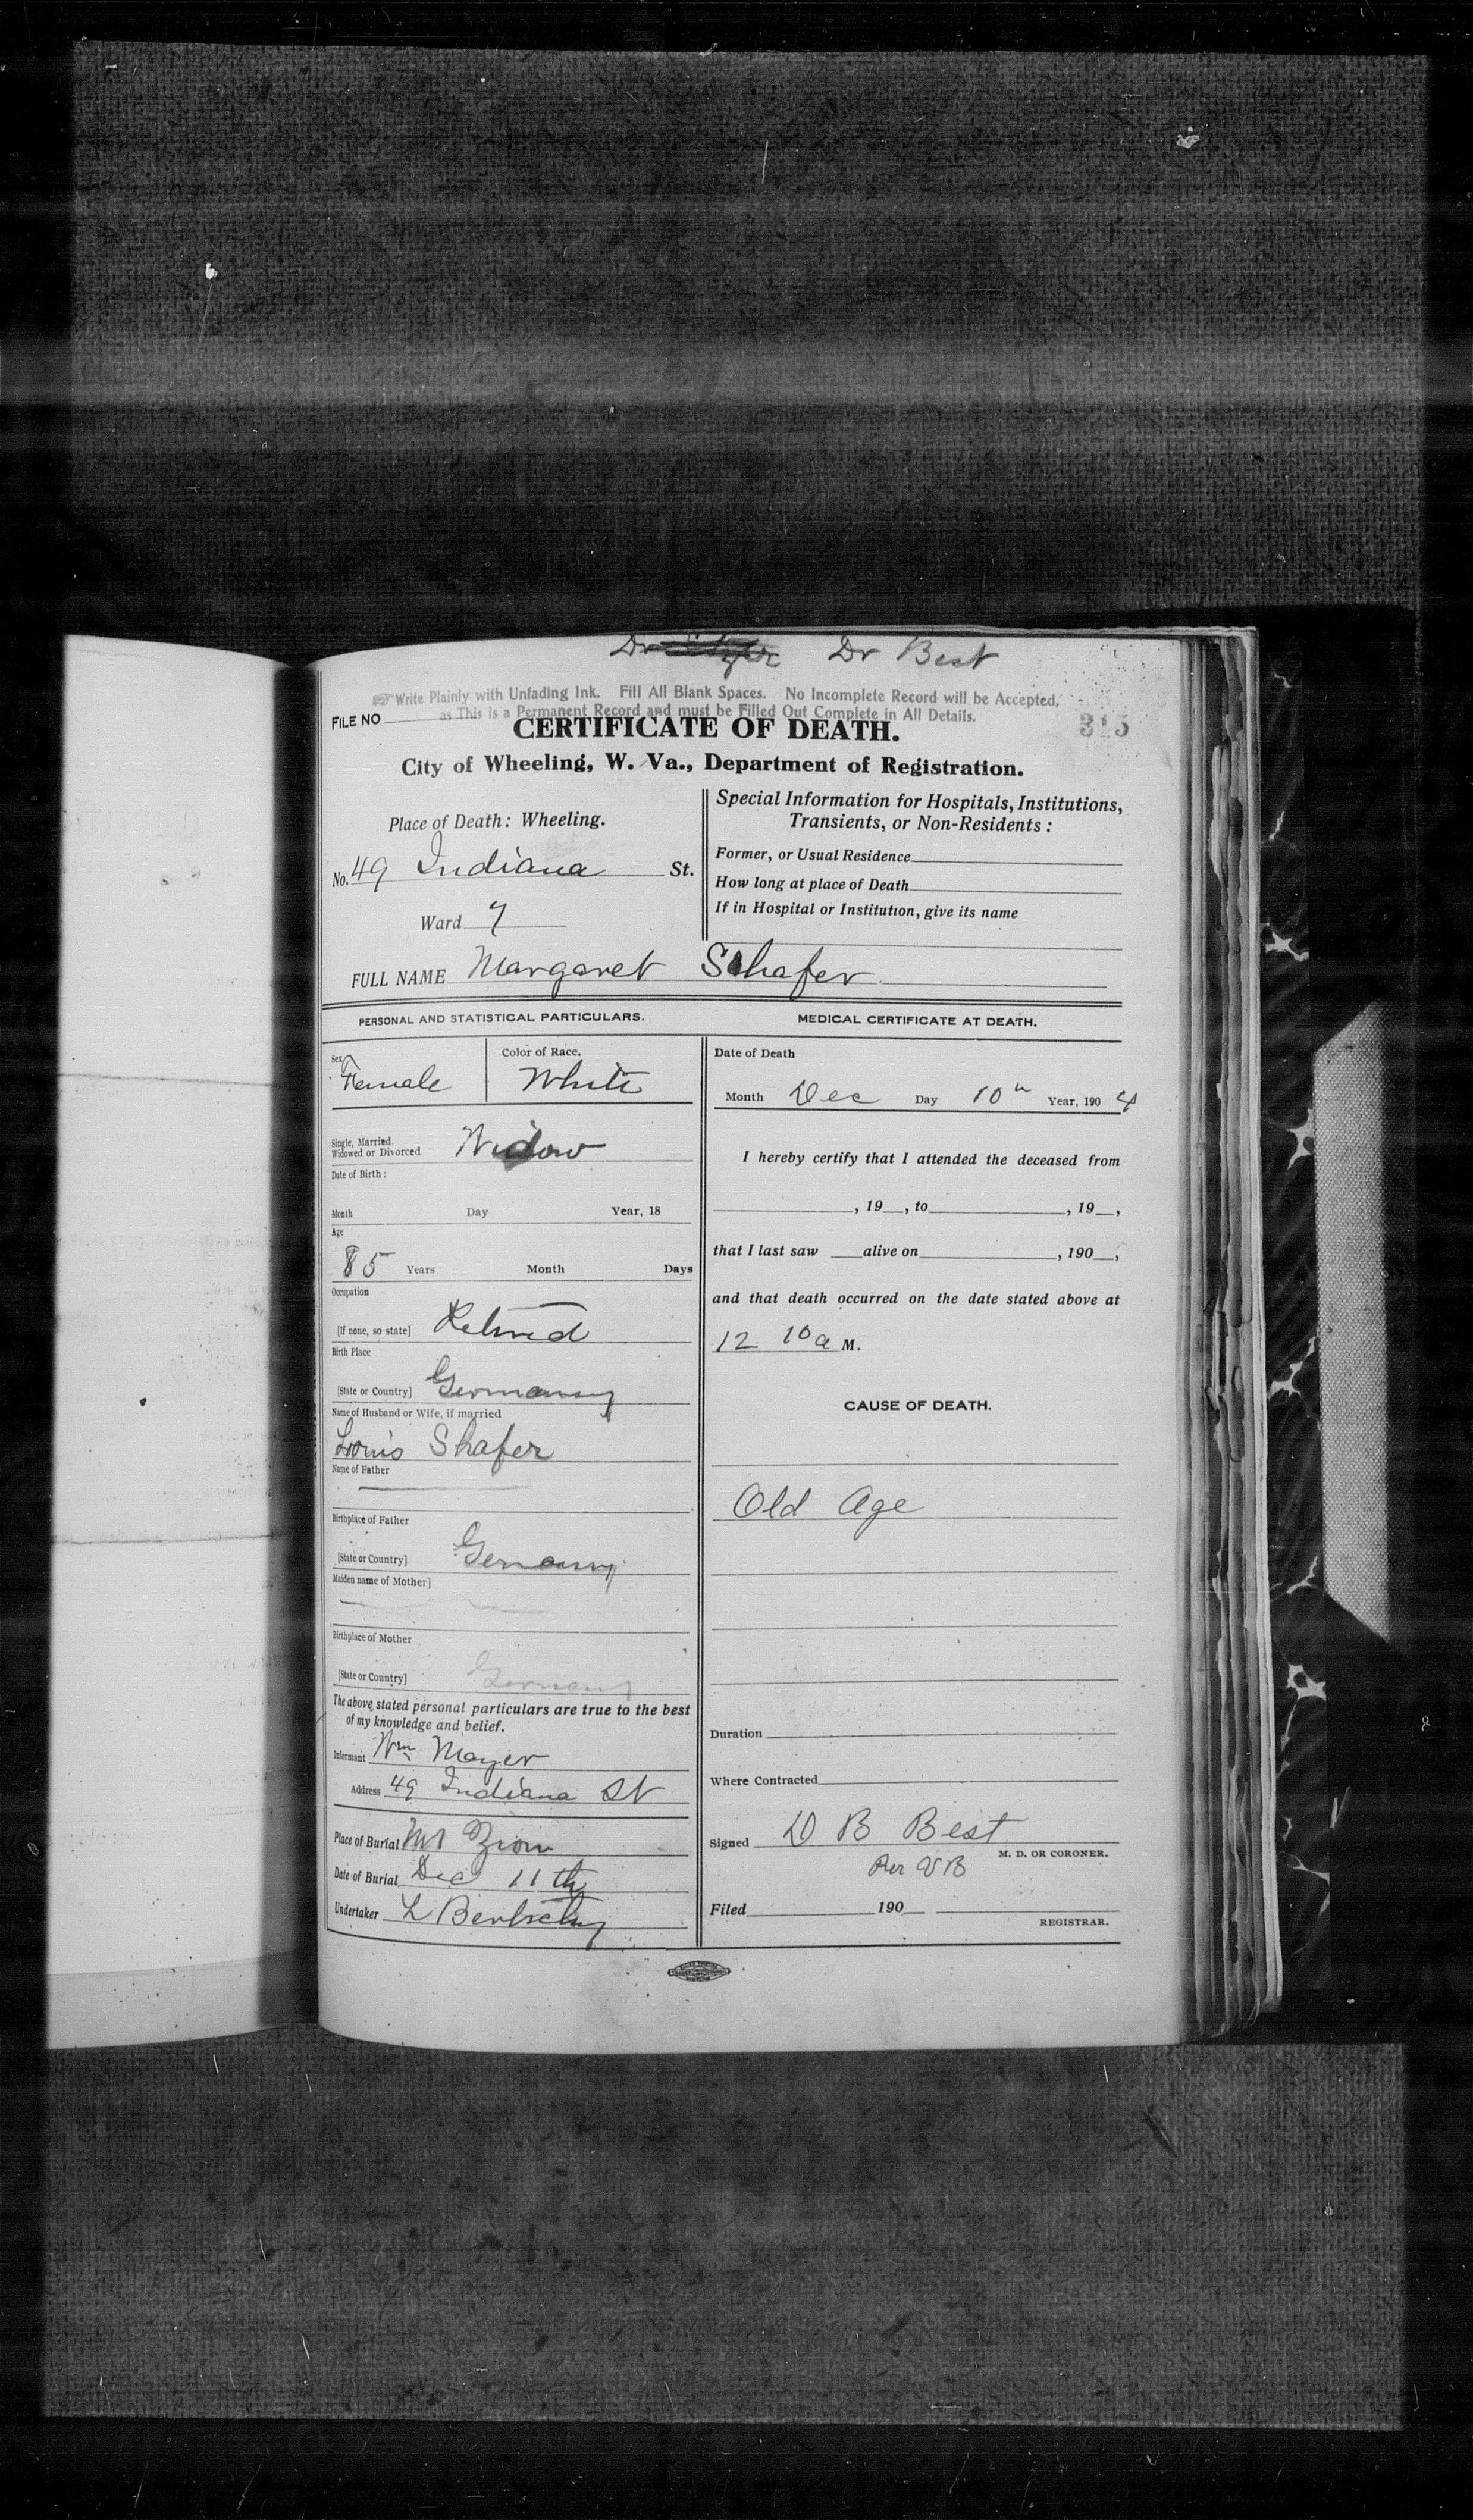 Dr Dr Best
Write Plainly with Unfading Ink. Fill All Blank Spaces. No Incomplete Record will be Accepted,
as This is a Permanent Record and must be Filled Out Complete in All Details.
FILE NO
315
CERTIFICATE OF DEATH.
City of Wheeling, W. Va., Department of Registration.
Place of Death: Wheeling.
No. 49 Indiana St.
Ward 7
Special Information for Hospitals, Institutions,
Transients, or Non-Residents:
Former, or Usual Residence
How long at place of Death
If in Hospital or Institution, give its name
FULL NAME Margaret Shafer
PERSONAL AND STATISTICAL PARTICULARS.
Sex Color of Race.
Female White
Single, Married.
Widowed or Divorced Widow
Date of Birth:
Month Day Year, 18
Age
85 Years Month Days
Occupation
[If none, so state] Retired
Birth Place
[State or Country] Germany
Name of Husband or Wife, if married
Louis Shafer
Name of Father
Birthplace of Father
[State or Country] Germany
Maiden name of Mother]
Birthplace of Mother
[State or Country] Germany
The above stated personal particulars are true to the best
of my knowledge and belief.
Informant Wm Mayer
Address 49 Indiana St
Place of Burial Mt Zion
Date of Burial Dec 11th
Undertaker L Bertschy
MEDICAL CERTIFICATE AT DEATH.
Date of Death
Month Dec Day 10th Year, 1904
I hereby certify that I attended the deceased from
, 19 , to , 19 ,
that I last saw alive on , 190 ,
and that death occurred on the date stated above at
12 10 a M.
CAUSE OF DEATH.
Old Age
Duration
Where Contracted
Signed D B Best
M. D. OR CORONER.
Per VB
Filed 190
REGISTRAR.